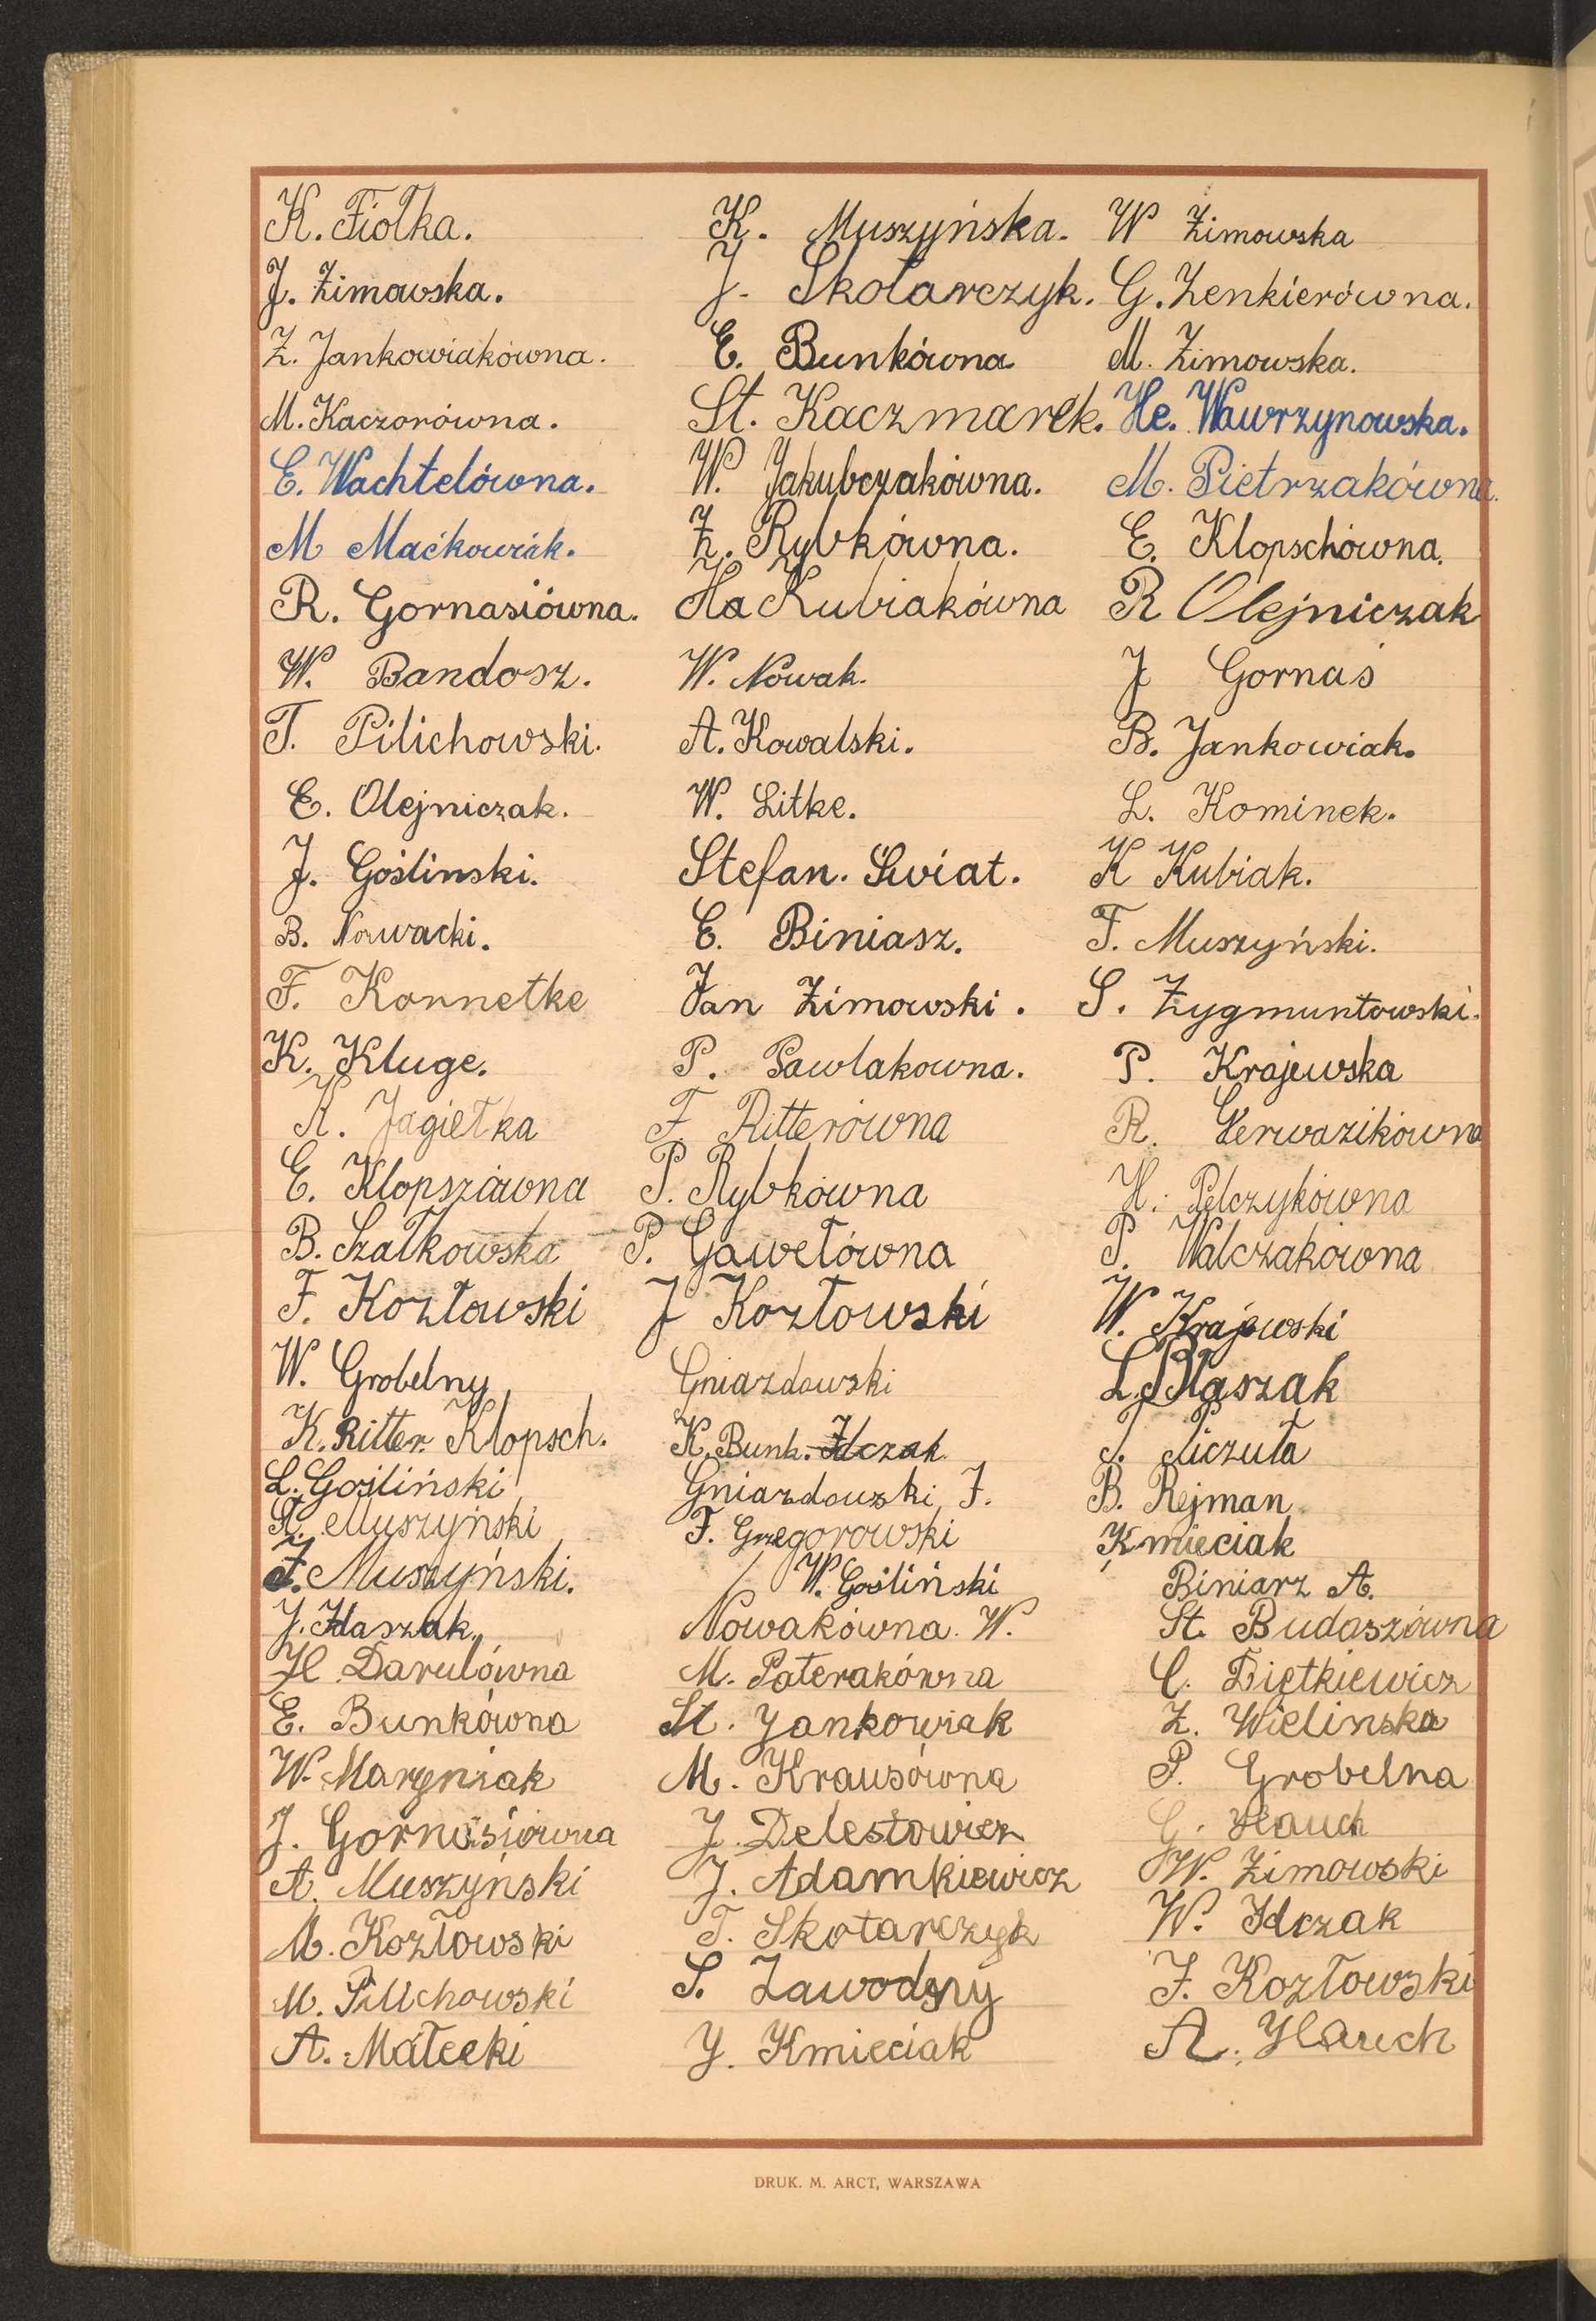 K. Fiołka. K. Muszyńska. W Zimowska
J. Zimowska. J. Skotarczyk. G. Zenkierówna.
Z. Jankowiakówna. E. Bunkówna M. Zimowska.
M. Kaczorówna. St. Kaczmarek. He. Wawrzynowska.
E. Wachtelówna. W. Jakubczakówna. M. Pietrzakówna.
M Maćkowiak. Z. Rybkówna. E. Klopschówna.
R. Gornasiówna. Ha Kubiakówna R Olejniczak
W. Bandosz. W. Nowak. J Gornaś
T. Pilichowski. A. Kowalski. B. Jankowiak.
E. Olejniczak. W. Litke. L. Kominek.
J. Goślinski. Stefan. Świat. K Kubiak.
B. Nowacki. E. Biniasz. F. Muszyński.
F. Kornetke Jan Zimowski. S. Zygmuntowski.
K. Kluge. P. Pawlakowna. P. Krajewska
K. Jagiełka F. Ritterówna R. Gerwazikówna
E. Klopszówna P. Rybkówna H. Pelczykówna
B. Szatkowska P. Gawełówna P. Walczakówna
F. Kozłowski J Kozłowski W. Krajewski
W. Grobelny Gniazdowski L. Błaszak
K. Ritter Klopsch. K. Bunk. Idczak
L. Gośliński Gniazdowski J. B. Rejman
Muszyński F. Gregorowski Kmieciak
J. Muszyński. W. Gośliński Biniarz A.
J. Nowakówna. W. St. Budaszówna
H. Darulówna M. Paterakówna C. Piętkiewicz
E. Bunkówna St. Jankowiak Z. Wielinska
W. Maryniak M. Krausówna P. Grobelna
J. Gornasiówna J. Delestowicz G. Hauch
A. Muszyński J. Adamkiewicz W. Zimowski
M. Kozłowski T. Skotarczyk W. Idczak
M. Pilichowski S. Zawodny J. Kozłowski
A. Małecki J. Kmieciak A. Hauch
DRUK. M. ARCT, WARSZAWA